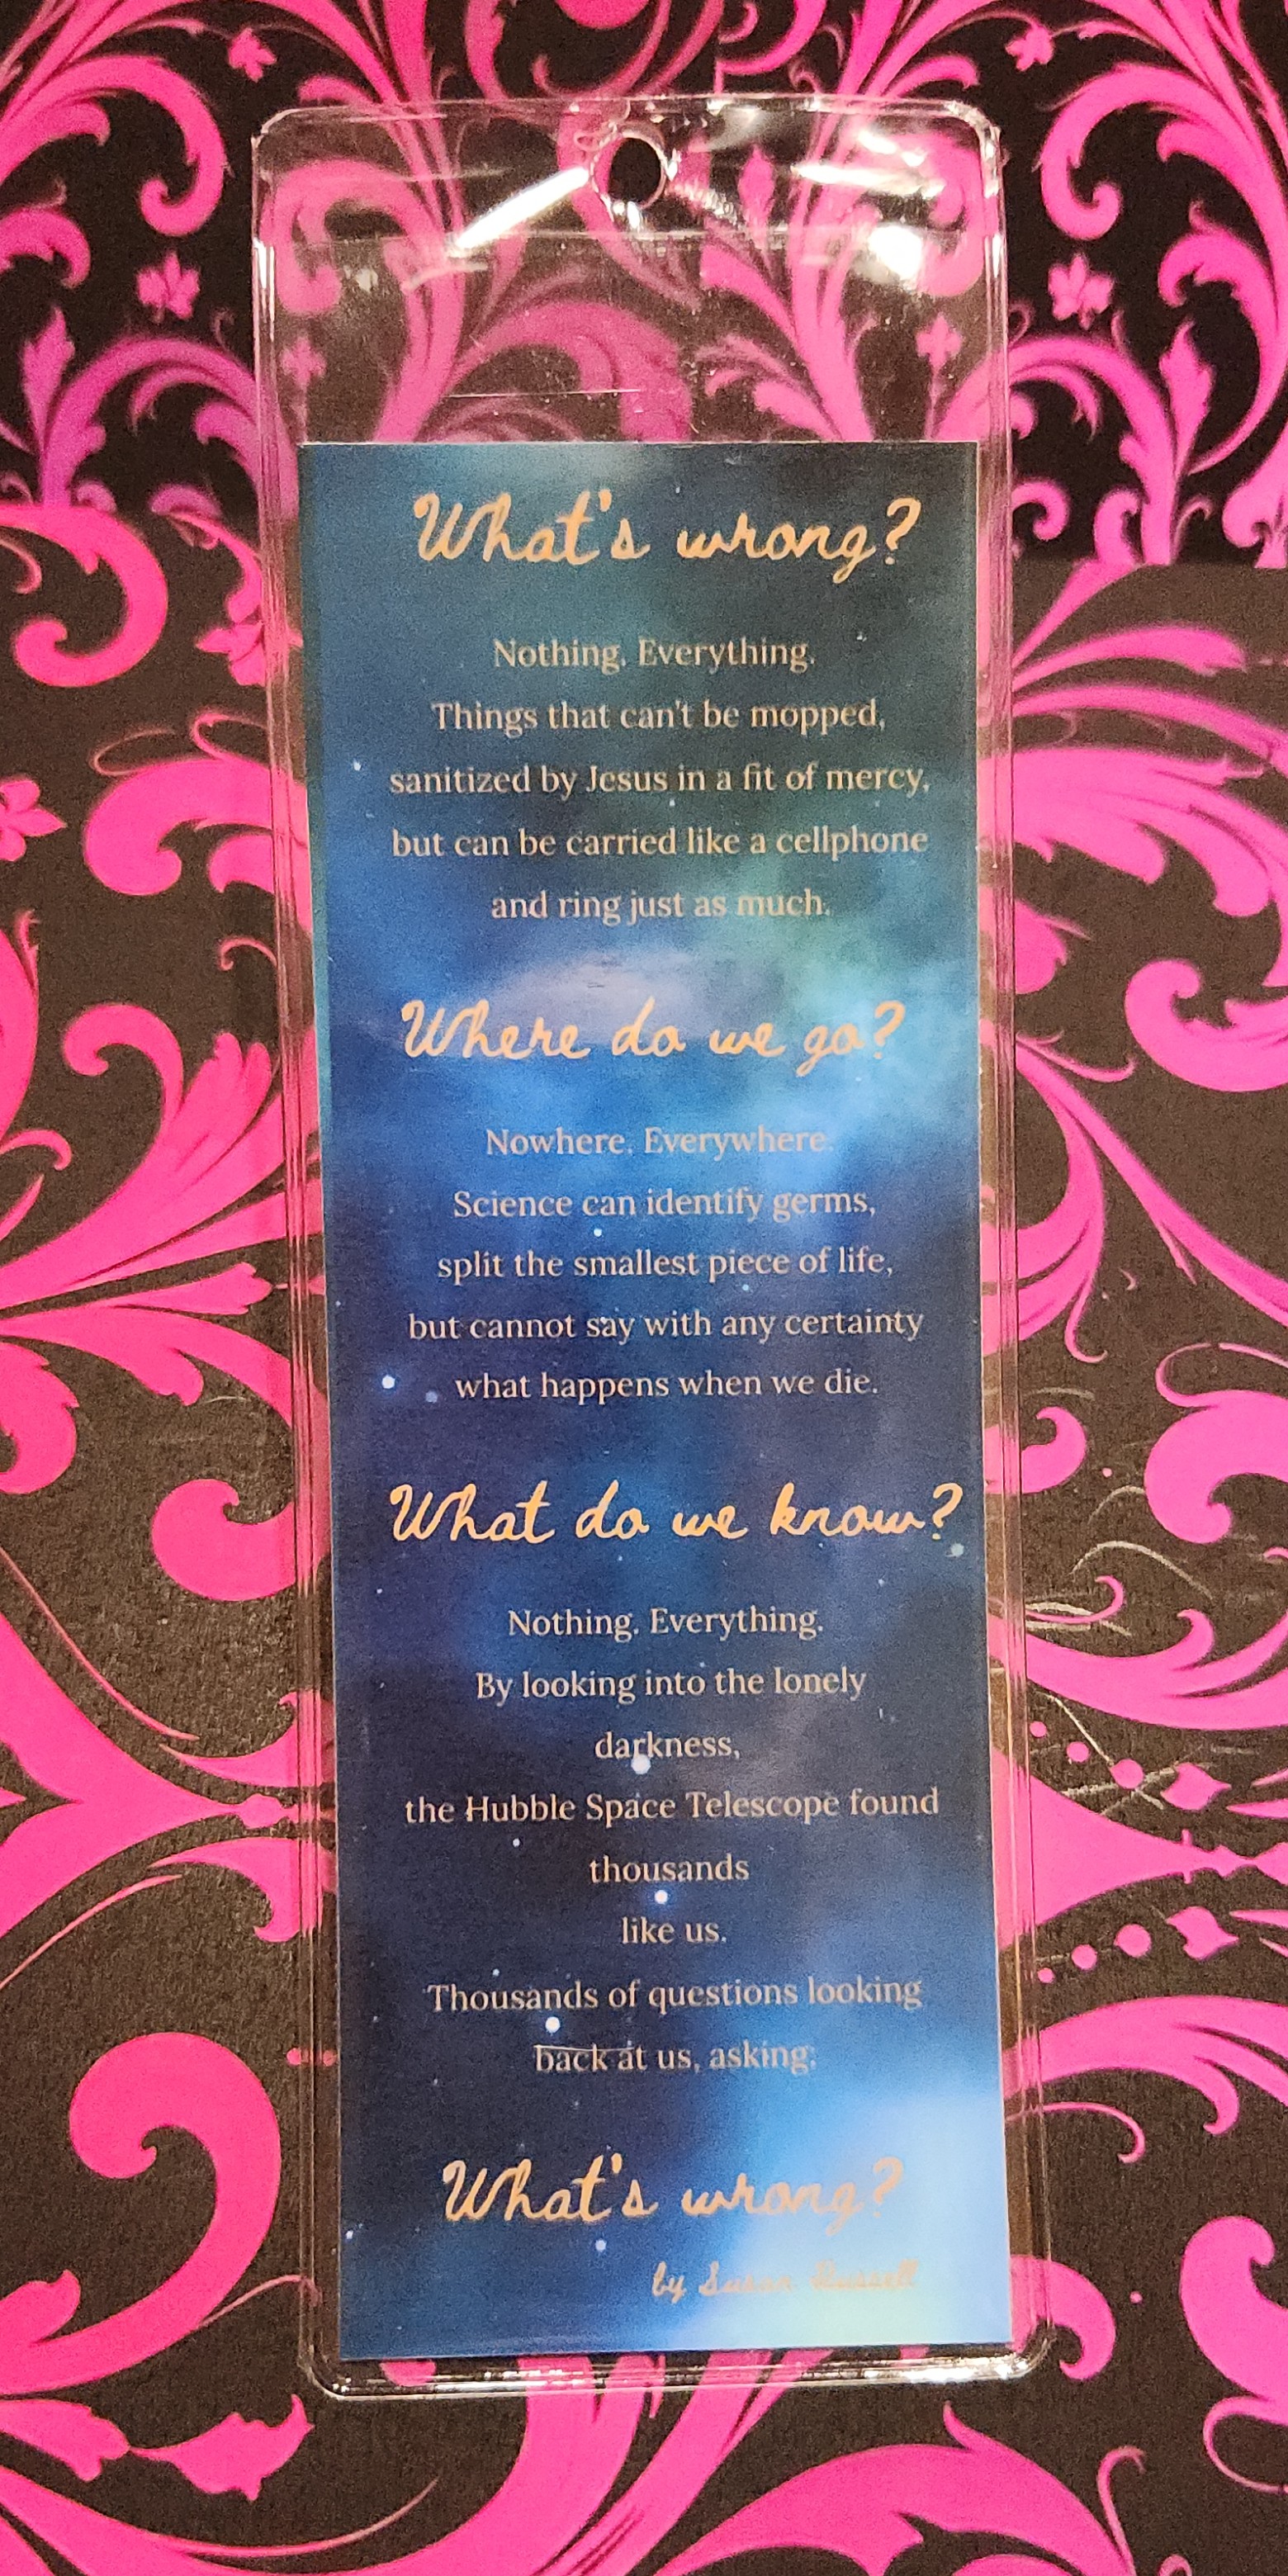 What's wrong?
Nothing. Everything.
Things that can't be mopped,
sanitized by Jesus in a fit of mercy,
but can be carried like a cellphone
and ring just as much.
Where do we go?
Nowhere. Everywhere.
Science can identify germs,
split the smallest piece of life,
but cannot say with any certainty
what happens when we die.
What do we know?
Nothing. Everything.
By looking into the lonely
darkness,
the Hubble Space Telescope found
thousands
like us.
Thousands of questions looking
back at us, asking:
What's wrong?
by Susan Russell